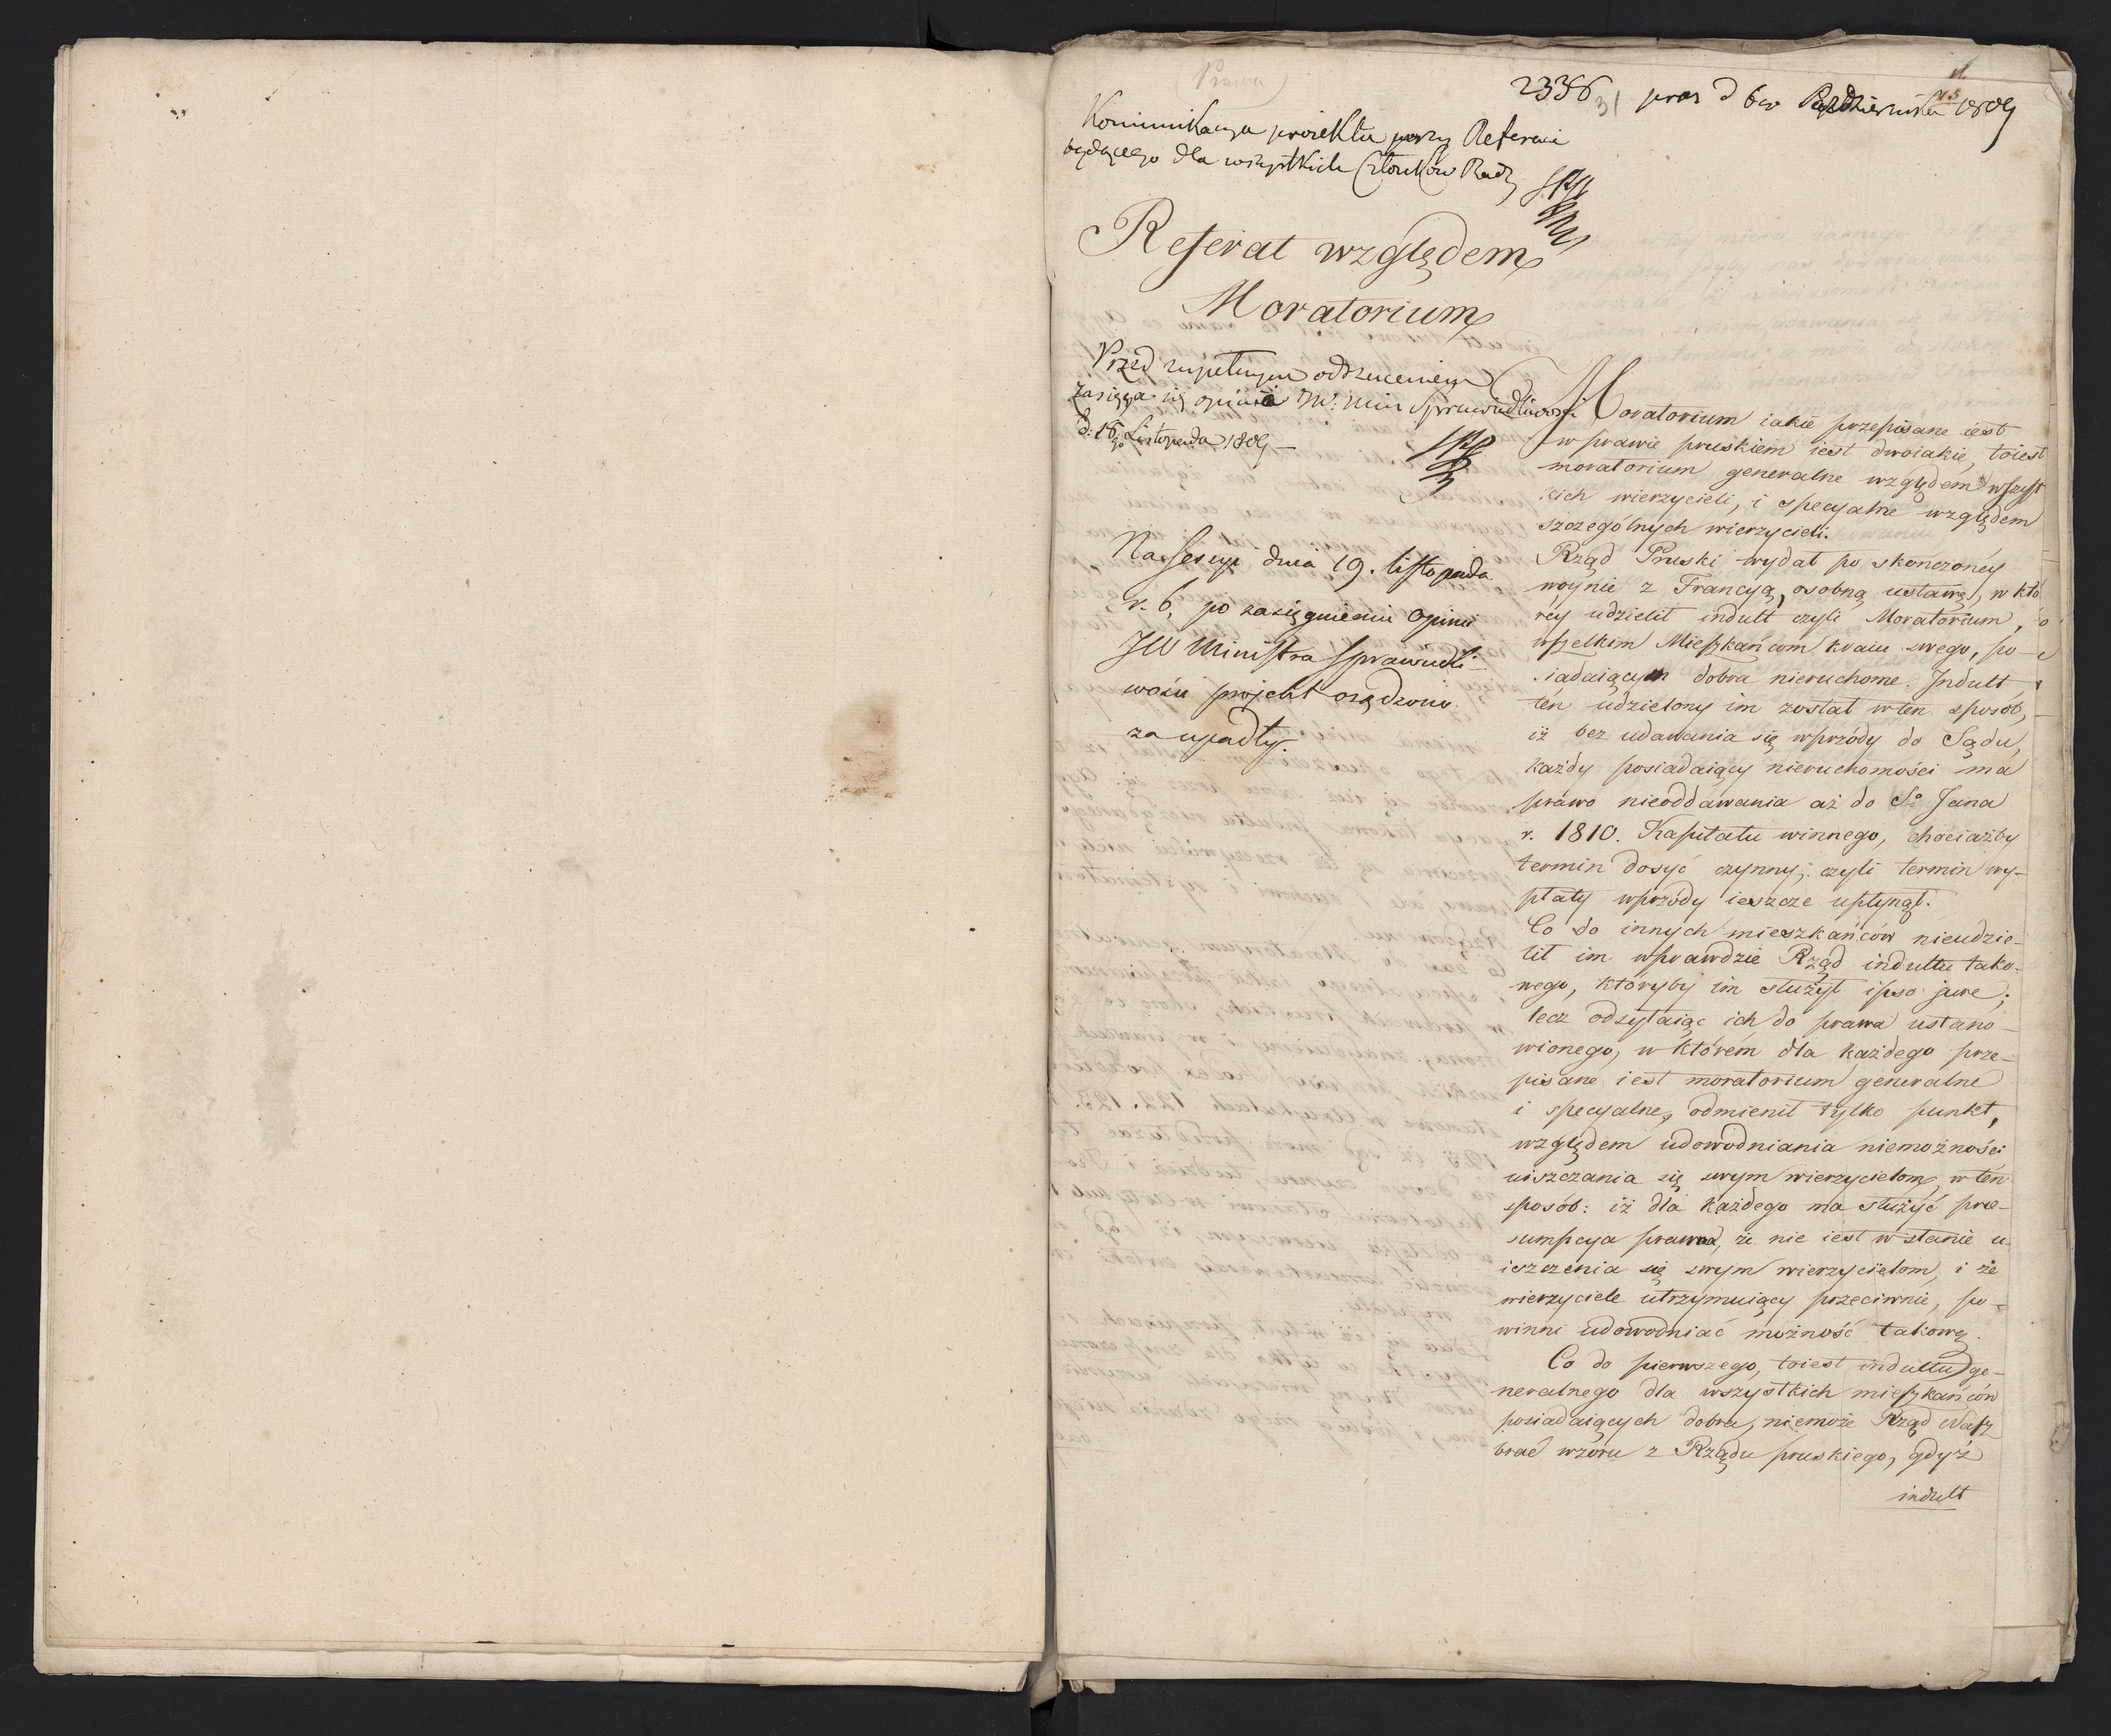 (Prawa)
2336 31 praes d 6go Października 1809
Kommunikacya proiektu przy Referacie
będącego dla wszystkich Członków Rady
Referat względem
Moratorium
Przed zupełnym odrzuceniem
zasięga się opinia JW: Min Sprawiedliwości
d: 18go Listopada 1809 –
Na Sessyi dnia 19. listopada
r. b. po zasięgnieniu Opinii
JW Ministra Sprawiedli-
wości projekt osądzono
za upadły.
Moratorium iakie przepisane iest
w prawie pruskiem iest dwoiakie, toiest
moratorium generalne względem wszyst
kich wierzycieli, i specyalne względem
szczególnych wierzycieli.
Rząd Pruski wydał po skończoney
woynie z Francyą, osobną ustawę, w któ
rey udzielił indult czyli Moratorium,
wszelkim Mieszkańcom kraiu swego, po-
siadaiącym dobra nieruchome. Indult
ten udzielony im został w ten sposób,
iż bez udawania się wprzódy do Sądu,
każdy posiadaiący nieruchomości ma
prawo nieoddawania aż do So Jana
r. 1810. Kapitału winnego, chociażby
termin dosyć czynny; czyli termin wy-
płaty wprzódy ieszcze upłynął.
Co do innych mieszkańców nieudzie-
lił im wprawdzie Rząd indultu tako-
wego, któryby im służył ipso jure;
lecz odsyłaiąc ich do prawa ustano-
wionego, w którém dla każdego prze-
pisane iest moratorium generalne
i specyalne, odmienił tylko punkt,
względem udowodniania niemożności
uiszczania się swym wierzycielom, w ten
sposób: iż dla każdego ma służyć pre-
sumpcya prawna, że nie iest w stanie u-
iszczenia się swym wierzycielom, i że
wierzyciele utrzymuiący przeciwnie, po-
winni udowodniać możność takową.
Co do pierwszego, toiest indultu ge-
neralnego dla wszystkich mieszkańców
posiadaiących dobra, niemoże Rząd Nasz
brać wzoru z Rządu pruskiego, gdyż
indult